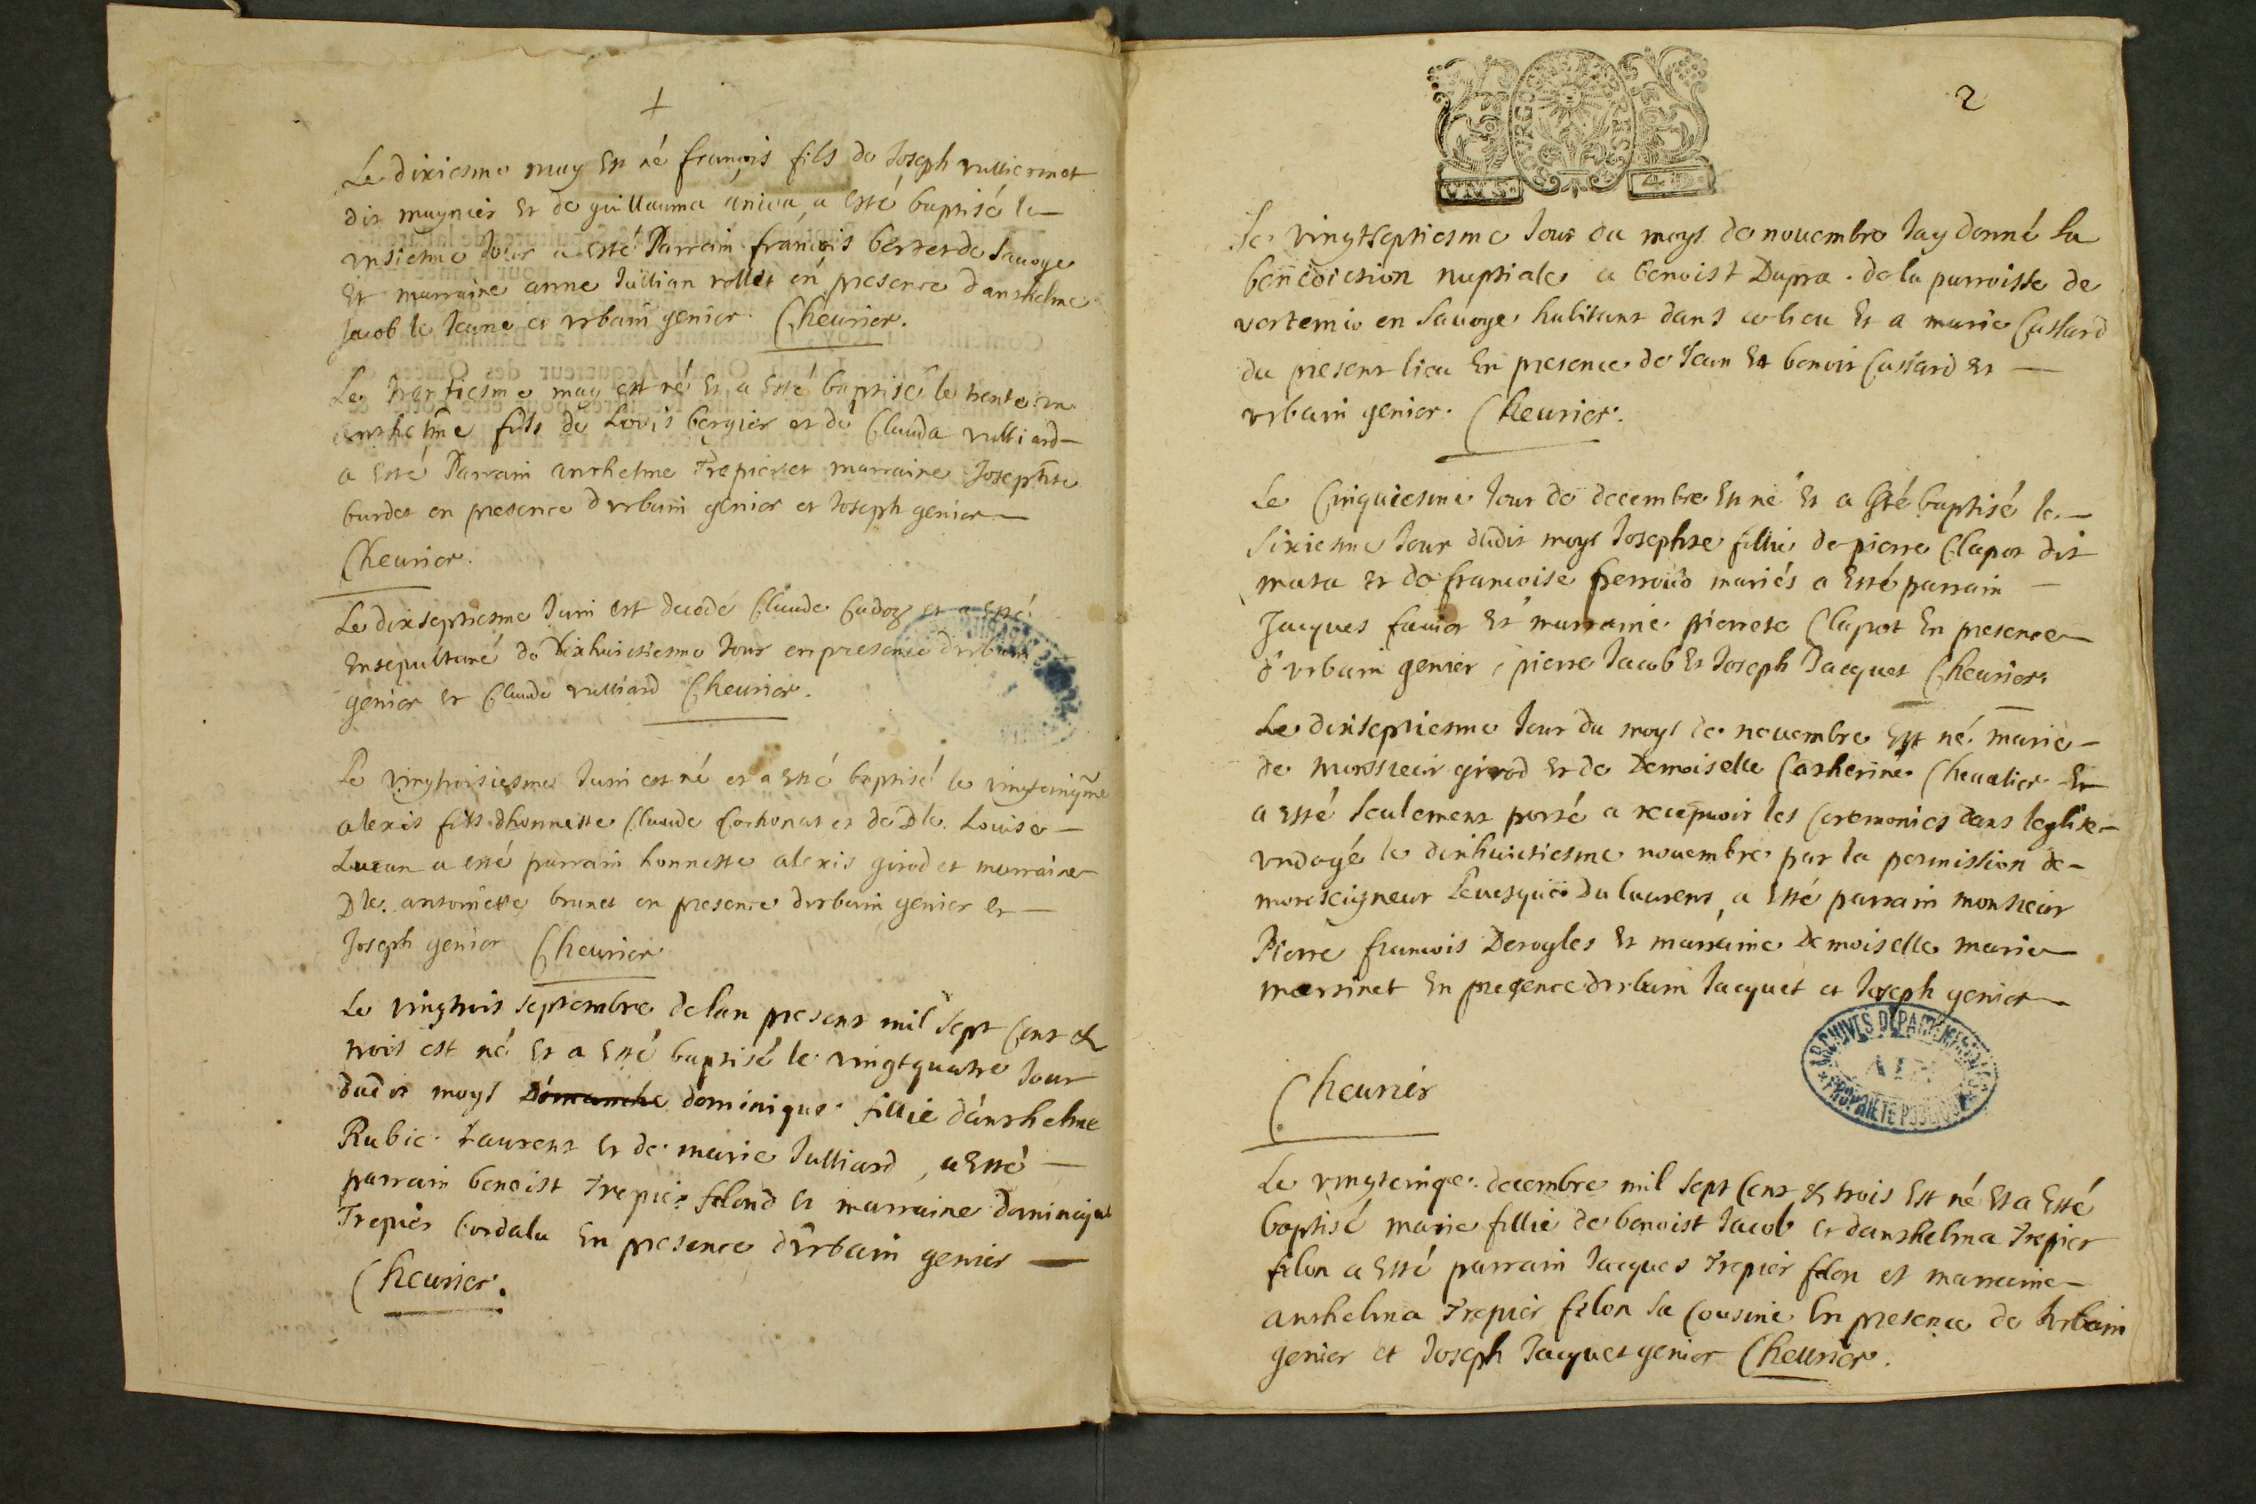 Le dixiesme may est né françois fils de Joseph vulliermet
dit magnier et de guillauma anica, a esté baptisé le
unsiesme jour a esté Parrain françois berterde Sauoye
et marraine anne Jullian rollet en presence danthelme
Jacob le Jeune et vrbain genier. Cheurier.
Le trentiesme may est né et a esté baptisé le trente un
anthelme fils de Louis bergier et de Clauda vulliard
a esté Parrain anthelme Trepier et marraine Josephte
burdet en presence dvrbain genier et Joseph genier
Cheurier.
Le dixseptiesme Juin est decedé Claude Cadoz et a esté
Ensepulturé de Dixhuictiesme Jour en presence dvrbain
genier et Claude vulliard Cheurier.
Le vingtroisiesme Juin est né et a esté baptisé le vingtcinqme
alexis fils dhonneste Claude Cochonat et de Dle. Louise
Luzan a esté parrain honneste alexis girod et marraine
Dle. antoinette brunet en presence dvrbain genier et
Joseph genier Cheurier
Le vingtrois septembre de lan present mil sept cent &
trois est né et a esté baptisé le vingtquatre Jour
dudit moys Dimanche dominique fillie danthelme
Rubie Laurent et de marie Julliard, a esté
parrain benoist Trepier felond et marraine dominique
Trepier Cordala En presence dVrbain genier
Cheurier.
2
BOURG EN BRESSE
UN S. 4 D.
Le vingtseptiesme Jour du moys de nouembre Jay donné la
benediction nuptiale a benoist Dupra de la parroisse de
vertemio en Sauoye habitant dans ce lieu et a marie Custard
du present lieu En presence de Jean Et benoit Custard et
vrbain genier. Cheurier.
Le Cinquiesme Jour de decembre est né et a esté baptisé le
Sixiesme Jour dudit moys Josephte fillie de pierre Clapot dit
mata et de francoise ferroud mariés a esté parrain
Jacques fauier et marraine pierrete Clapot En presence
d'vrbain genier, pierre Jacob et Joseph Jacquet Cheurier.
Le dixseptiesme Jour du moys de nouembre Est né marie
de monsieur girod et de Demoiselle Catherine Cheualier Et
a esté seulement porté a recepuoir les Ceremonies dans leglise
vndoyé le dixhuictiesme nouembre par la permission de
monseigneur Leuesque Du laurens, a esté parrain monsieur
Pierre francois Deroyles et marraine Demoiselle marie
martinet En presence dvrbain Jacquet et Joseph genier
Cheurier
ARCHIVES DEPARTEMENTALES
AIN
PROPRIETE PUBLIQUE
Le vingtcinqe. decembre mil sept cent & trois est né et a esté
baptisé marie fillie de benoist Jacob et danthelma Trepier
felon a esté parrain Jacques Trepier felon et marraine
anthelma Trepier felon sa Cousine En presence de Vrbain
genier et Joseph Jacquet genier Cheurier.